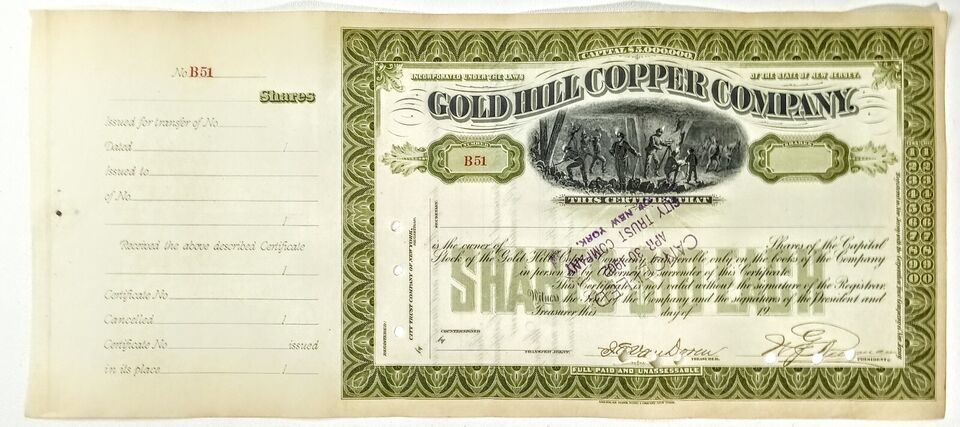 No. B51
Shares
Issued for transfer of No.
Dated 1
Issued to
of No.
1
Received the above described Certificate
1
Certificate No.
Cancelled 1
Certificate No. issued
in its place 1
CAPITAL $5,000,000.
INCORPORATED UNDER THE LAWS OF THE STATE OF NEW JERSEY.
GOLD HILL COPPER COMPANY.
NUMBER
B51
SHARES
THIS CERTIFIES THAT
is the owner of Shares of the Capital
Stock of the Gold Hill Copper Company, transferable only on the books of the Company
in person or by Attorney on surrender of this Certificate.
This Certificate is not valid without the signature of the Registrar.
Witness the seal of the Company and the signatures of the President and
Treasurer this day of 19
SHARES EACH
CITY TRUST COMPANY
OF NEW YORK.
APR 30 1902
REGISTERED:
CITY TRUST COMPANY OF NEW YORK,
REGISTRAR.
by
SECRETARY.
COUNTERSIGNED
by
TRANSFER AGENT.
J. E. Van Doren
TREASURER.
PRESIDENT.
FULL PAID AND UNASSESSABLE